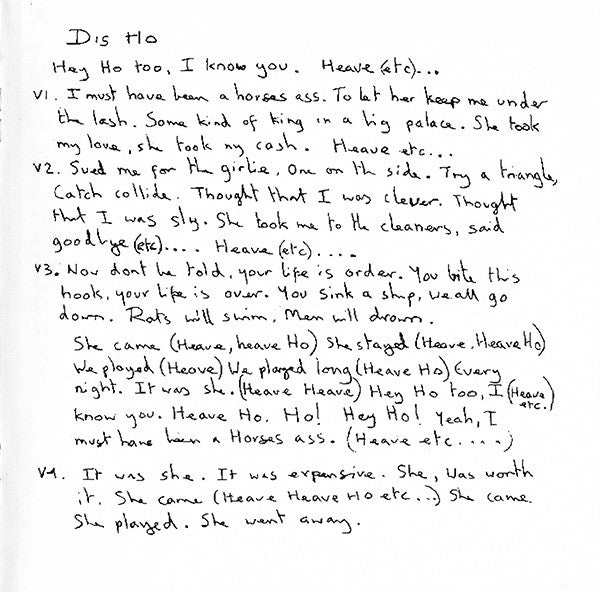 Dis Ho
Hey Ho too, I know you. Heave (etc)...
V1. I must have been a horses ass. To let her keep me under
the lash. Some kind of king in a big palace. She took
my love, she took my cash. Heave etc...
V2. Sued me for the girlie, One on the side. Try a triangle,
Catch collide. Thought that I was clever. Thought
that I was sly. She took me to the cleaners, said
goodbye (etc).... Heave (etc)....
V3. Now dont be told, your life is order. You bite this
hook, your life is over. You sink a ship, we all go
down. Rats will swim. Men will drown.
She came (Heave, heave Ho) She stayed (Heave. Heave Ho)
We played (Heave) We played long (Heave Ho) Every
night. It was she. (Heave Heave) Hey Ho too, I (Heave etc.)
know you. Heave Ho. Ho! Hey Ho! Yeah, I
must have been a Horses ass. (Heave etc....)
V4. It was she. It was expensive. She, Was worth
it. She came (Heave Heave Ho etc..) She came.
She played. She went away.